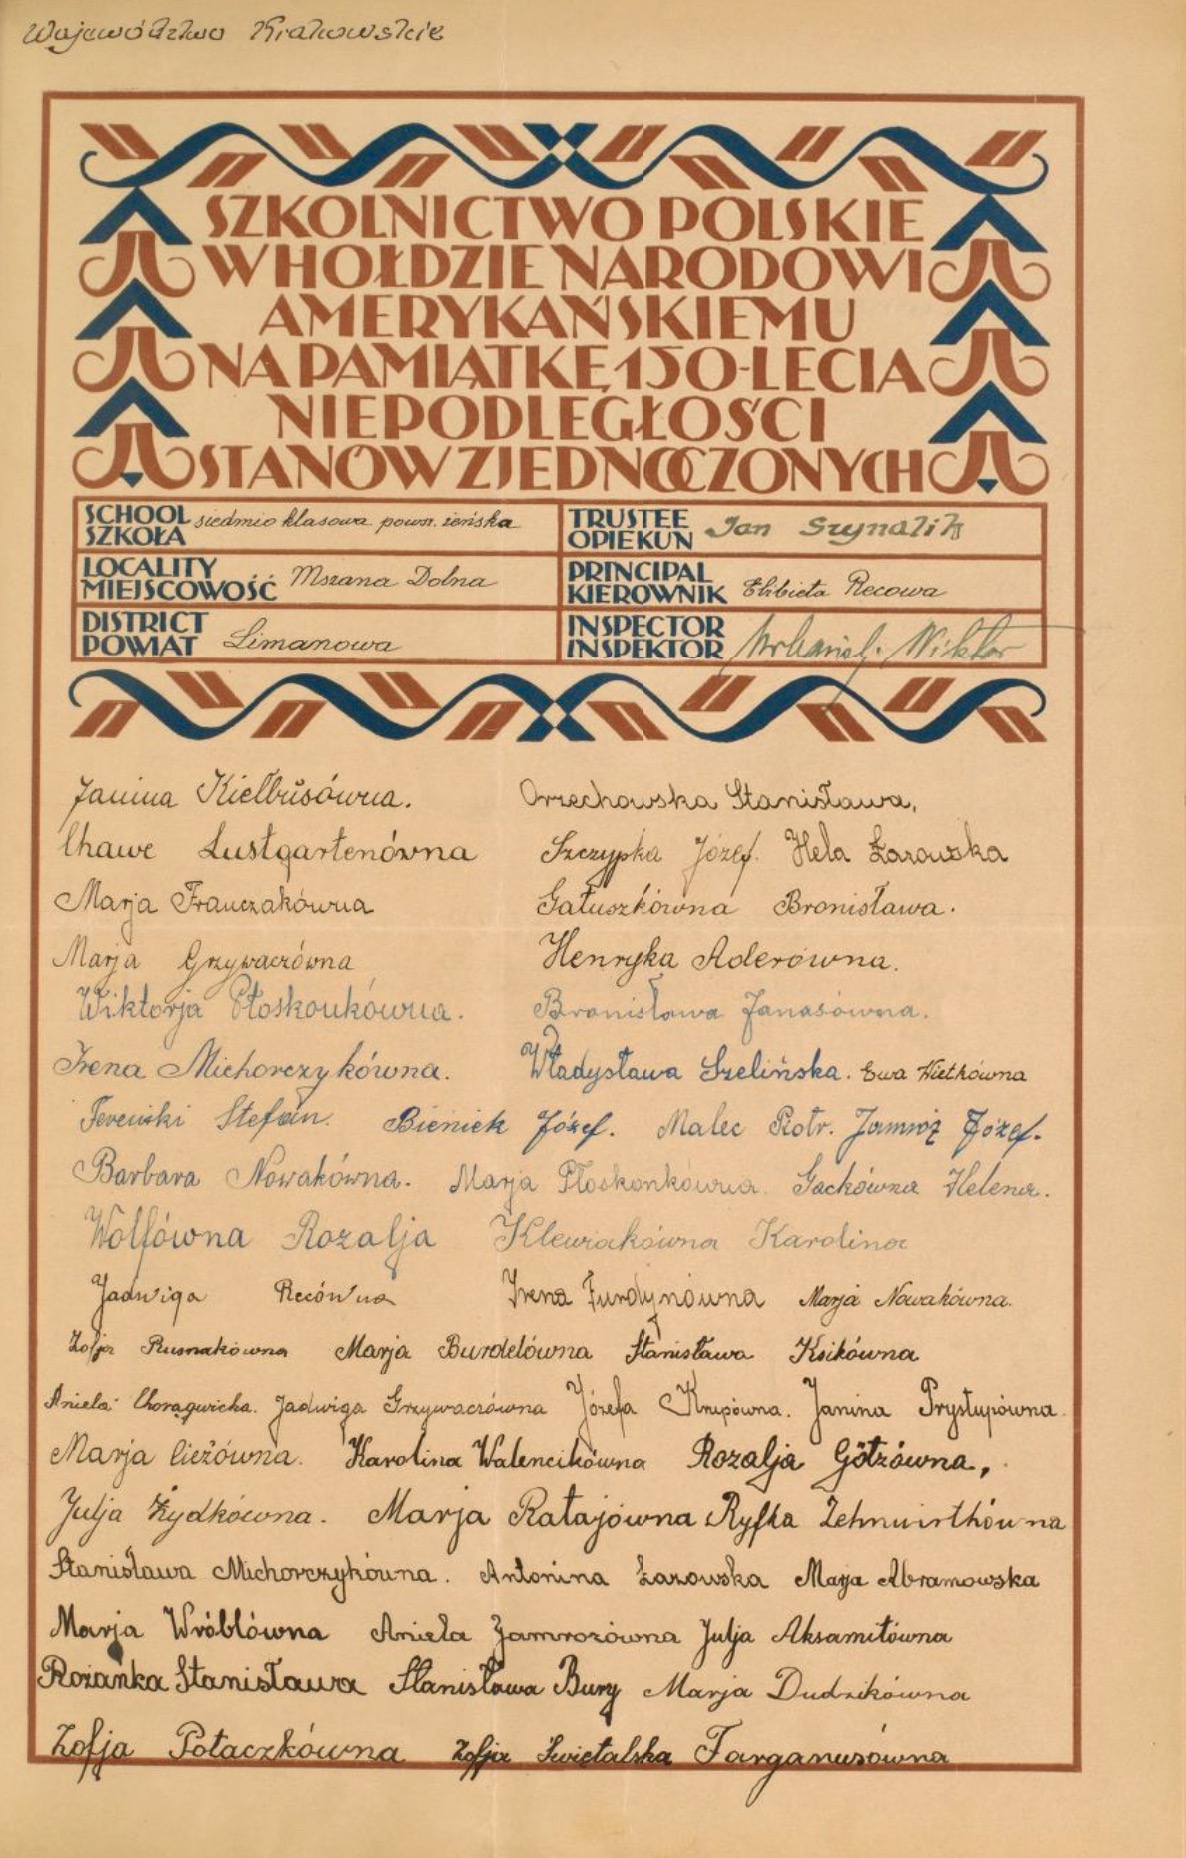 Województwo Krakowskie
SZKOLNICTWO POLSKIE
W HOŁDZIE NARODOWI
AMERYKAŃSKIEMU
NA PAMIĄTKĘ 150-LECIA
NIEPODLEGŁOŚCI
STANÓW ZJEDNOCZONYCH
SCHOOL SZKOŁA siedmio klasowa powsz. żeńska
TRUSTEE OPIEKUN Jan Szynalik
LOCALITY MIEJSCOWOŚĆ Mszana Dolna
PRINCIPAL KIEROWNIK Elżbieta Recowa
DISTRICT POWIAT Limanowa
INSPECTOR INSPEKTOR Wiktor
Janina Kiełbusówna. Orzechowska Stanisława,
Chawe Lustgartenówna Szczypka Józef. Hela Łazowska
Marja Franczakówna Gałuszkówna Bronisława.
Marja Grzywaczówna Henryka Aderówna.
Wiktorja Płoskonkówna. Bronisława Janasówna.
Irena Michorczykówna. Władysława Szelińska. Ewa Wietkówna
Stefan. Bieniek Józef. Malec Piotr. Jamróz Józef.
Barbara Nowakówna. Marja Płoskonkówna. Gackówna Helena.
Wolfówna Rozalja Klewiakówna Karolina
Jadwiga Recówna Irena Furdynówna Marja Nowakówna.
Zofja Rusnakówna Marja Burdelówna Stanisława Ksikówna
Aniela Chorągwicka. Jadwiga Grzywaczówna Józefa Krupówna. Janina Prystupówna.
Marja Cieżówna. Karolina Walencikówna Rozalja Götzówna,
Julja Żydkówna. Marja Ratajówna Ryfka Zehnwirthówna
Stanisława Michorczykówna. Antonina Łazowska Marja Abramowska
Marja Wróblówna Aniela Jamrozówna Julja Aksamitówna
Rożańka Stanisława Stanisława Bury Marja Dudzikówna
Zofja Potaczkówna Zofja Swietalska Targanusówna